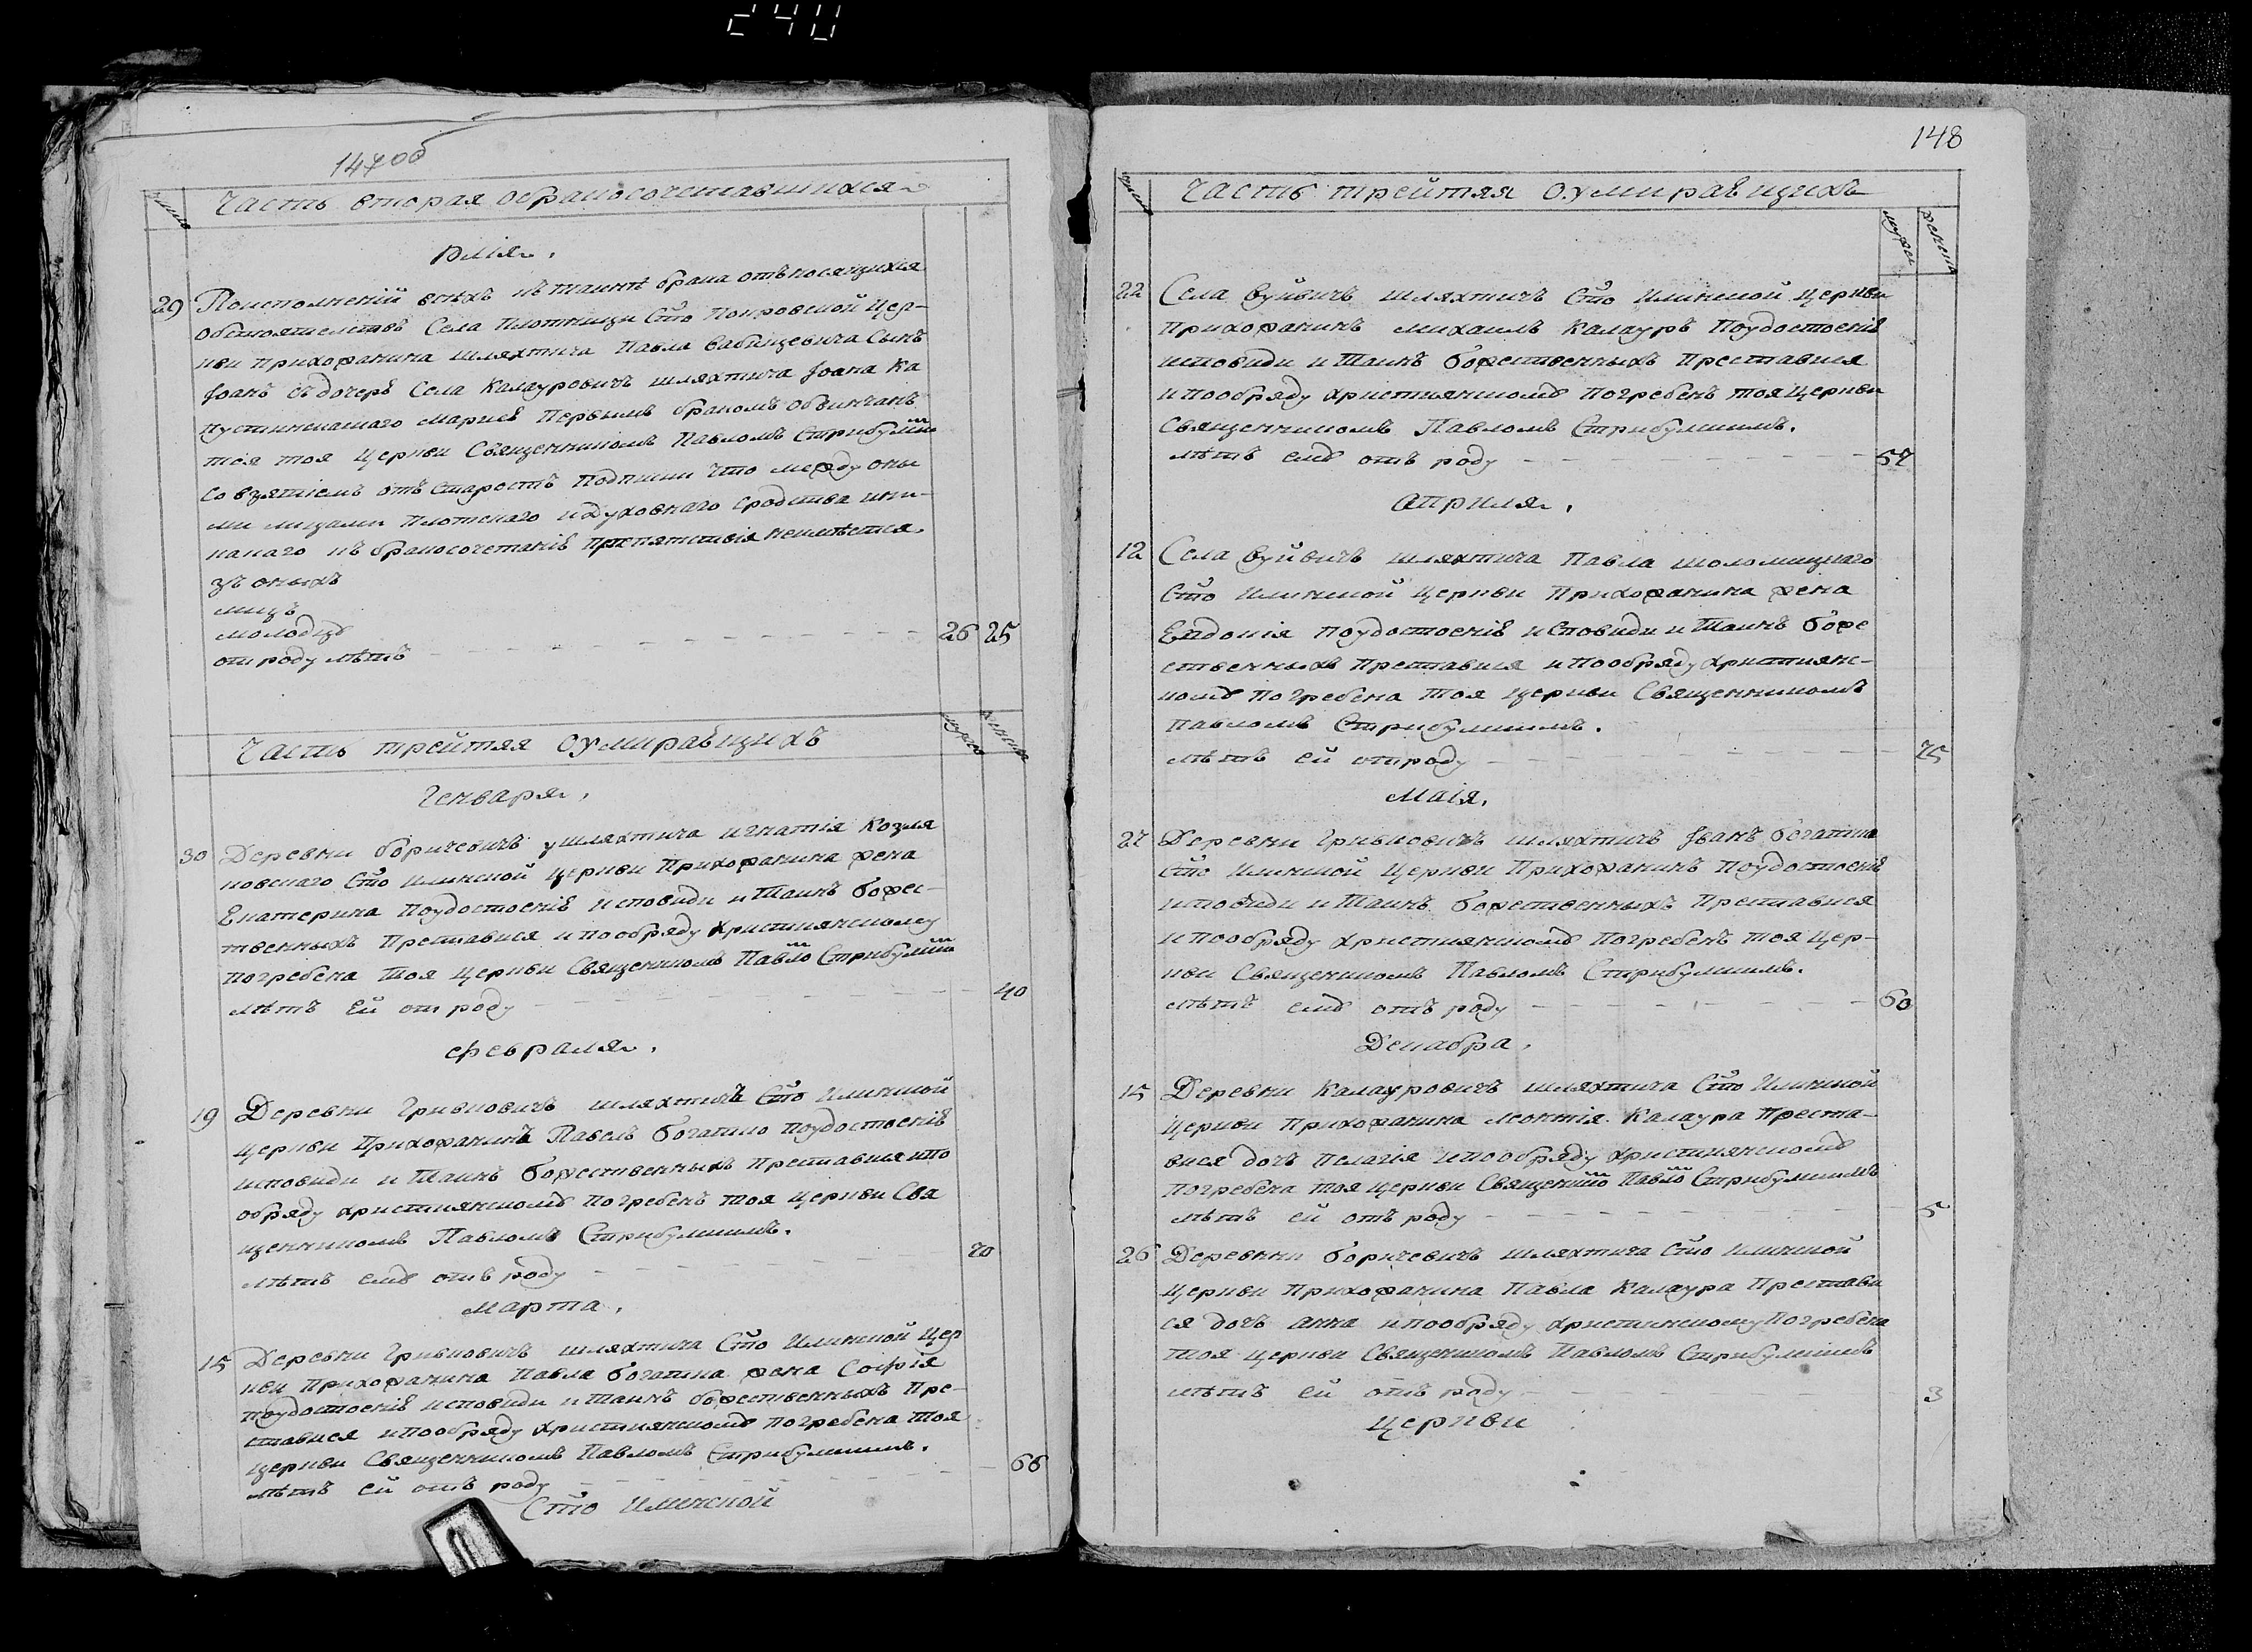 240
147об
числа
Часть вторая обраносочетавшихся
29
Поисполненій всѣхъ къ таинѣ брана отъносящихся
обстоятелствъ Села Плотницы Сто Покровской Цер-
кви прихожанина шляхтича Павла Бабицевича Сынъ
Іоанъ съ дочерѣ Села Калауровичъ шляхтича Іоана Ка
пустинскагаго Маріеѣ Первымъ браномъ обвинчанъ
тоя Церкви Священникомъ Павломъ
со взятіемъ отъ старостъ подписки что между оны
ми лицами плотскаго и духовнаго сродства ини-
какаго къ браносочетаніѣ препятствія неимѣется.
зъ оныхъ
лицъ
молодцѣ
отроду лѣтъ 26 25
мужес женско
Часть трейтяя оумиравщихъ
Генваря.
30 Деревни Боричевичъ у шляхтича Игнатія Козля
ковскаго Сто Илинской Церкви Прихожанина жена
Екатерина Поудостоеніѣ исповиди и Таинъ божес-
твенныхъ Преставися и пообряду християнскому
погребена тоя Церкви Священникомъ Павло Стрибулш
лѣтъ Ей отроду 40
февраля.
19 Деревни Гривковичъ шляхтичъ Сто Илинской
Церкви Прихожанинъ Павелъ Богатко Поудостоеніѣ
исповиди и Таинъ божественныхъ Преставися ипо
обряду християнскомѣ погребенъ тоя Церкви Свя
щенникомъ Павломъ Стрибулшимъ.
лѣтъ емѣ отъ роду 70
Марта.
15 Деревни Гривковичъ шляхтича Сто Илинской Цер
кви Прихожанина Павла Богатка жена Софія
поудостоеніѣ исповиди и Таинъ божественныхъ Пре-
ставися ипообряду християнскомѣ погребена тоя
Церкви Священникомъ Павломъ Стрибулшимъ.
лѣтъ ей отъ роду 66
Сто Илинской
148
числа
Часть трейтяя оумиравщихъ
мужес женско
22 Села Вуйвичъ шляхтичъ Сто Илинской Церкви
Прихожанинъ Михаилъ Калауръ Поудостоеніѣ
исповиди и Таинъ божественныхъ Преставися
ипообряду християнскомѣ погребенъ тоя Церкви
Священникомъ Павломъ Стрибулшимъ.
лѣтъ емѣ отъ роду 57
Априля.
12 Села Вуйвичъ шляхтича Павла Шоломицкаго
Сто Илинской Церкви Прихожанина жена
Евдокія поудостоеніѣ исповиди и Таинъ боже
ственныхъ Преставися ипообряду християнс-
комѣ погребена тоя Церкви Священникомъ
Павломъ Стрибулшимъ.
лѣтъ ей отроду 75
Маія.
27 Деревни Гривковичъ шляхтичъ Іванъ Богатка
Сто Илинской Церкви Прихожанинъ Поудостоеніѣ
исповиди и Таинъ божественныхъ Преставися
ипообряду християнскомѣ погребенъ тоя Цер-
кви Священикомъ Павломъ Стрибулшимъ.
лѣтъ емѣ отъ роду 60
Декабра.
15 Деревни Калауровичъ шляхтича Сто Илинской
Церкви Прихожанина Леонтія Калаура Преста-
вися дочъ Пелагія ипообряду християнскомѣ
погребена тоя Церкви Священико Павло Стрибулшимъ
лѣтъ ей отъ роду 5
26 Деревни Боричевичъ шляхтича Сто Илинской
Церкви Прихожанина Павла Калаура Престави
ся дочъ Анна ипообряду христинскому погребена
тоя Церкви Священикомъ Павломъ Стрибулшимъ
лѣтъ ей отъ роду 3
Церкви